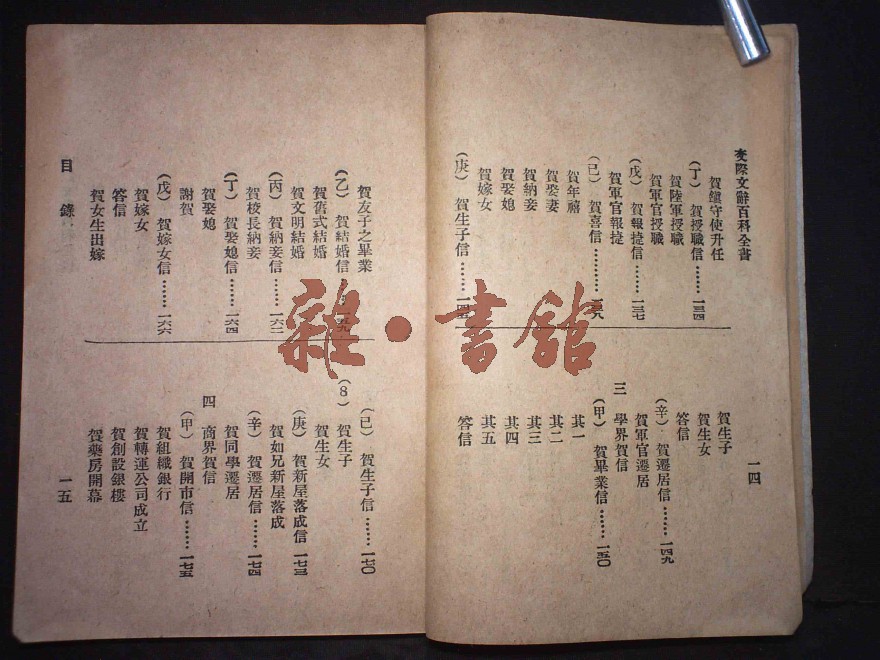 交際文辭百科全書
賀鎭守使升任
(丁) 賀授職信……一三四
賀陸軍授職
賀軍官授職
(戊) 賀報捷信……一三七
賀軍官報捷
(已) 賀喜信………一三八
賀年禧
賀娶妻
賀納妾
賀娶媳
賀嫁女
(庚) 賀生子信………一四五
賀生子
賀生女
答信
(辛) 賀遷居信……一四九
賀軍官遷居
三 學界賀信
(甲) 賀畢業信……一五〇
其一
其二
其三
其四
其五
答信
一四
賀友子之畢業
(乙) 賀結婚信
賀舊式結婚
賀文明結婚
(丙) 賀納妾信……一六二
賀校長納妾
(丁) 賀娶媳信……一六四
賀娶媳
謝賀
(戊) 賀嫁女信……一六六
賀嫁女
答信
賀女生出嫁
(已) 賀生子信……一七〇
(8) 賀生子
賀生女
(庚) 賀新屋落成信 一七三
賀如兄新屋落成
(辛) 賀遷居信……一七四
賀同學遷居
四 商界賀信
(甲) 賀開市信……一七五
賀組織銀行
賀轉運公司成立
賀創設銀樓
賀藥房開幕
目錄
一五
雜·書館